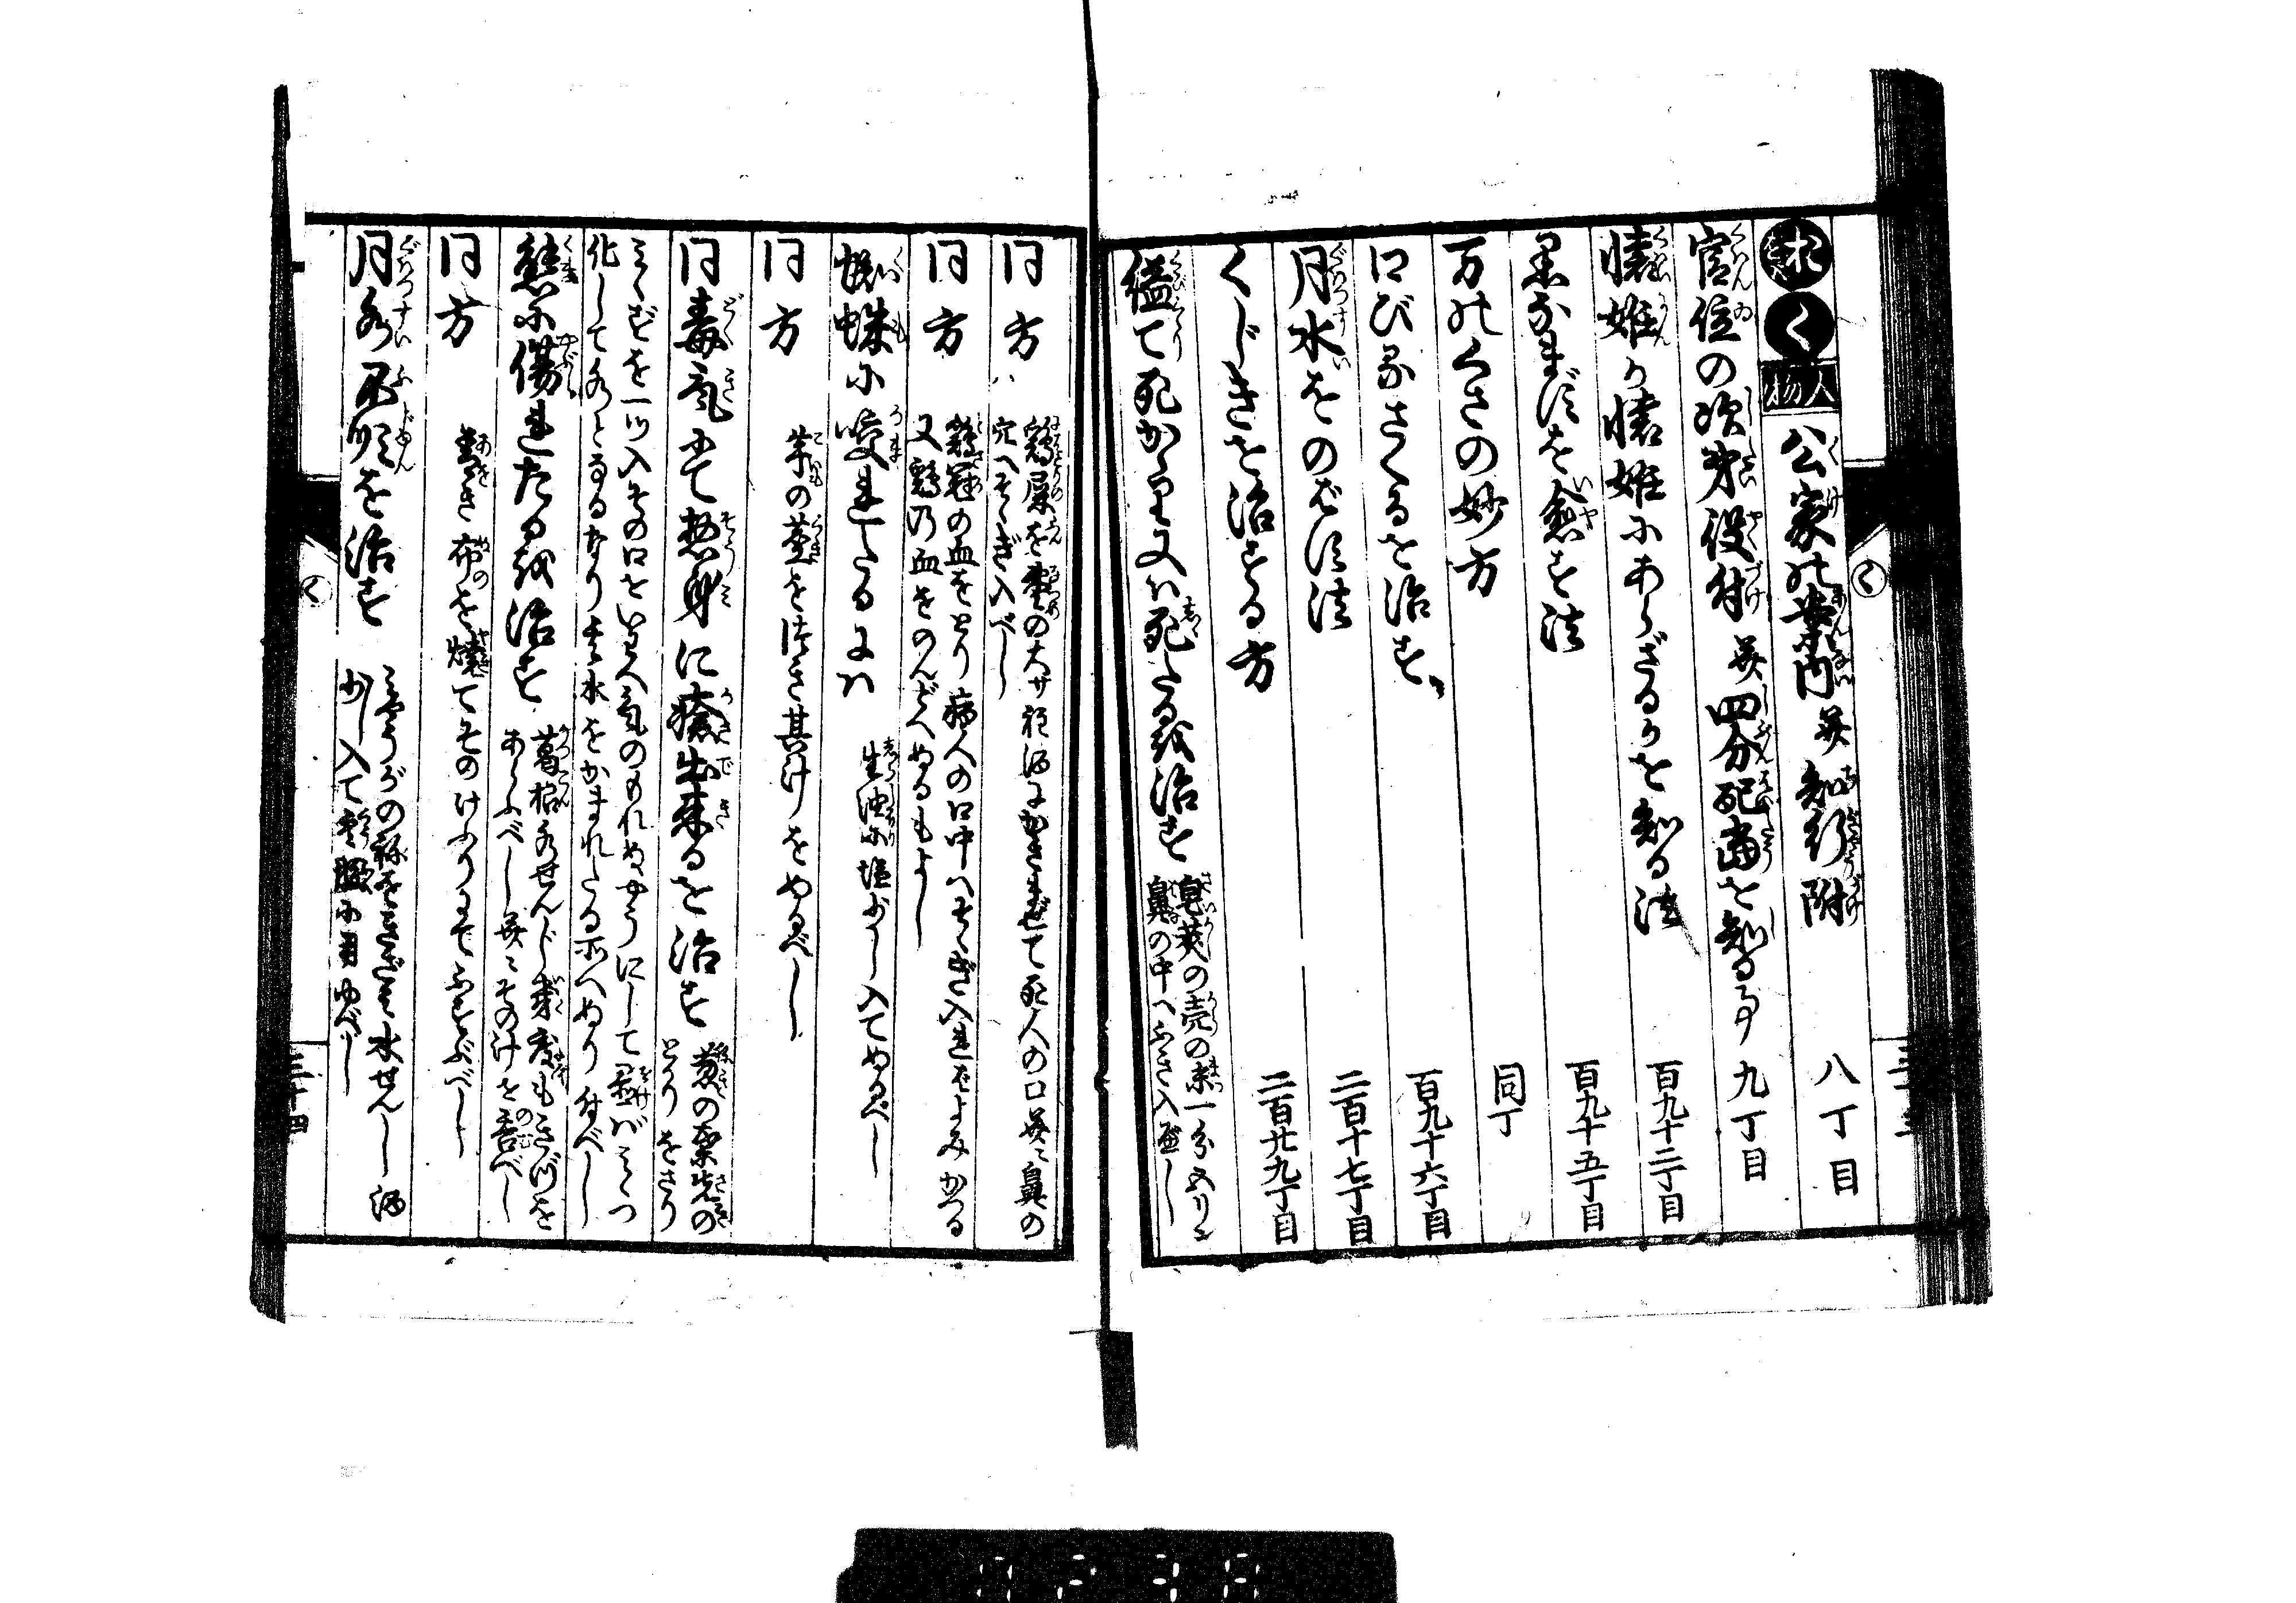 く
人物
公家の案内并知行附 八丁目
官位の次第役付并四分配当を知る事 九丁目
懐妊か懐妊にあらざるかを知る法 百九十二丁目
百九十五丁目
万のくさの妙方 同丁
口びるさくるを治す 百九十六丁目
月水をのばす法 二百十七丁目
くじきを治する方 二百廿九丁目
縊て死かゝり又ハ死たるを治す
皂莢の売の末一分
鼻の中へふき入べし
く
同方
鶏屎を棗の大サ程酒にかきまぜて死人の口并ニ鼻の
穴へそゝぎ入べし
同方
鶏冠の血をとり病人の口中へそゝぎ入れば
又鶏の血をのんどへぬるもよし
蜘蛛に咬れたるにハ
生油に塩少し入てぬるべし
同方
芋の茎をつきさき其汁をぬるべし
同毒気にて惣身に瘡出来るを治す
葱の葉先の
とがりをさり
みゝずを一ツ入その口をいわへ気のもれぬやうにして置ばみゝず
化して水となるなり其水をかまれたる所へぬり付べし
熊に傷れたるを治す
葛根水せんじ幾度もきづを
あらふべし并ニその汁を呑べし
同方
青き布を燒てそのけふりにてふすぶべし
月水不順を治す
みやうがの根をきざみ水せんし酒
少し入て空腹に用ゆべし
く
三十四